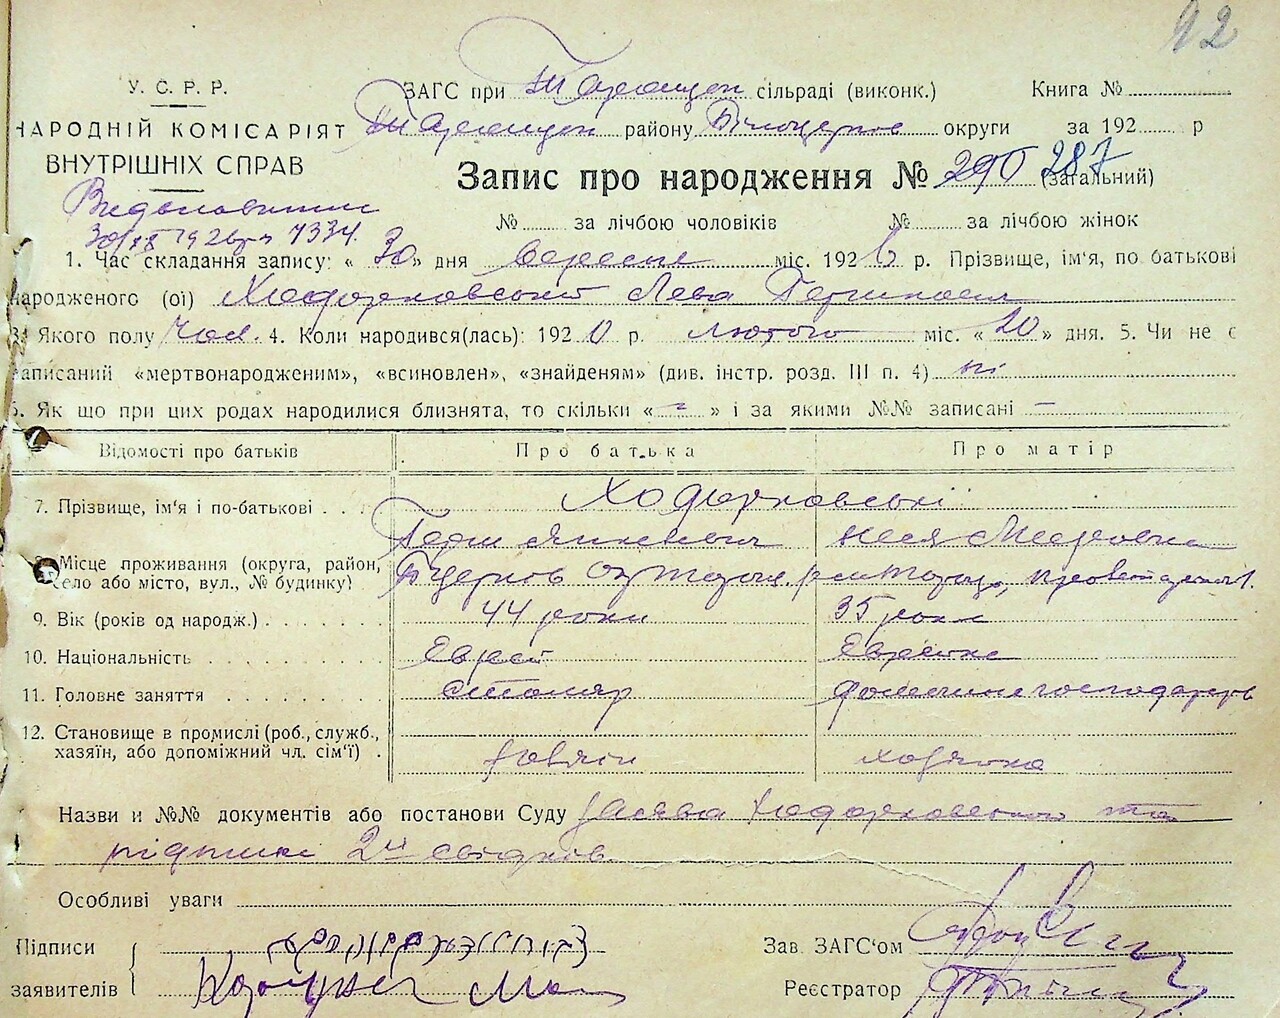 92
У. С. Р. Р.
ЗАГС при Таращан сільраді (виконк.) Книга №
НАРОДНІЙ КОМІСАРІЯТ
Таращан району Білоцерков округи за 192 р
ВНУТРІШНІХ СПРАВ
Запис про народження № 290 287 (загальний)
30/IX 1926 р. 7334.
№ за лічбою чоловіків № за лічбою жінок
1. Час складання запису: « 30 » дня вересня міс. 1926 р. Прізвище, ім'я, по батькові
народженого (ої) Ходорковський Лева
3. Якого полу Чол. 4. Коли народився(лась): 1920 р. лютого міс. « 20 » дня. 5. Чи не є
записаний «мертвонародженим», «всиновлен», «знайденям» (див. інстр. розд. III п. 4) ні
6. Як що при цих родах народилися близнята, то скільки « - » і за якими №№ записані —
Відомості про батьків Про батька Про матір
7. Прізвище, ім'я і по-батькові Ходорковські
8. Місце проживання (округа, район,
село або місто, вул., № будинку)
9. Вік (років од народж.) 44 роки 35 роки
10. Національність Єврей Єврейка
11. Головне заняття столяр домашнє господарств
12. Становище в промислі (роб., служб.,
хазяїн, або допоміжний чл. сім'ї) хазяїн хазяйка
Назви и №№ документів або постанови Суду заява Ходорковського та
підписи 2х свідків
Особливі уваги
Підписи
заявителів
Зав. ЗАГС'ом
Реєстратор